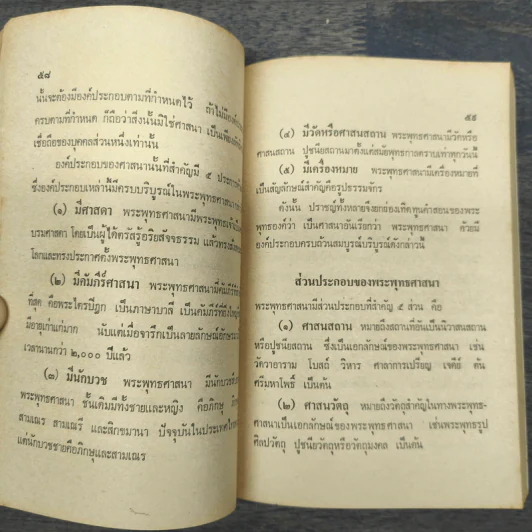 ๕๘
นั้นจะต้องมีองค์ประกอบตามที่กำหนดไว้ ถ้าไม่มีองค์
ครบตามที่กำหนด ก็ถือว่าสิ่งนั้นมิใช่ศาสนา เป็นเพียง
เชื่อถือของบุคคลส่วนหนึ่งเท่านั้น
องค์ประกอบของศาสนานั้นที่สำคัญมี ๕ ประการ
ซึ่งองค์ประกอบเหล่านี้มีครบบริบูรณ์ในพระพุทธศาสนา
(๑) มีศาสดา พระพุทธศาสนามีพระพุทธเจ้า
บรมศาสดา โดยเป็นผู้ได้ตรัสรู้อริยสัจจธรรม แล้วทรง
โลกและทรงประกาศตั้งพระพุทธศาสนา
(๒) มีคัมภีร์ศาสนา พระพุทธศาสนามีคัมภีร์
ที่สุด คือพระไตรปิฎก เป็นภาษาบาลี เป็นคัมภีร์ที่ยิ่ง
มีอายุเก่าแก่มาก นับแต่เมื่อจารึกเป็นลายลักษณ์อักษร
เวลานานกว่า ๒,๐๐๐ ปีแล้ว
(๓) มีนักบวช พระพุทธศาสนา มีนักบวช
พระพุทธศาสนา ชั้นเดิมมีทั้งชายและหญิง คือภิกษุ
สามเณร สามเณรี และสิกขมานา ปัจจุบันในประเทศไทย
แต่นักบวชชายคือภิกษุและสามเณร
๕๙
(๔) มีวัดหรือศาสนสถาน พระพุทธศาสนามีวัดหรือ
ศาสนสถาน ปูชนียสถานมาตั้งแต่สมัยพุทธกาลตราบเท่าทุกวันนี้
(๕) มีเครื่องหมาย พระพุทธศาสนามีเครื่องหมายที่
เป็นสัญลักษณ์สำคัญคือรูปธรรมจักร
ดังนั้น ปราชญ์ทั้งหลายจึงยกย่องเทิดทูนคำสอนของพระ
พุทธองค์ว่า เป็นศาสนาอันเรียกว่า พระพุทธศาสนา ด้วยมี
องค์ประกอบครบถ้วนสมบูรณ์บริบูรณ์ดังกล่าวนี้
ส่วนประกอบของพระพุทธศาสนา
พระพุทธศาสนามีส่วนประกอบที่สำคัญ ๕ ส่วน คือ
(๑) ศาสนสถาน หมายถึงสถานที่อันเป็นนิวาสนสถาน
หรือปูชนียสถาน ซึ่งเป็นเอกลักษณ์ของพระพุทธศาสนา เช่น
วัดวาอาราม โบสถ์ วิหาร ศาลาการเปรียญ เจดีย์ ต้น
ศรีมหาโพธิ์ เป็นต้น
(๒) ศาสนวัตถุ หมายถึงวัตถุสำคัญในทางพระพุทธ-
ศาสนาเป็นเอกลักษณ์ของพระพุทธศาสนา เช่นพระพุทธรูป
ศิลปวัตถุ ปูชนียวัตถุหรือวัตถุมงคล เป็นต้น